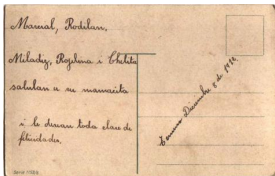 Marcial, Rodilan,
Miladiz, Rogelina i Chelita
saludan a su mamacita
i le desean toda clase de
felicidades.
Temuco Diciembre 8 de 1929